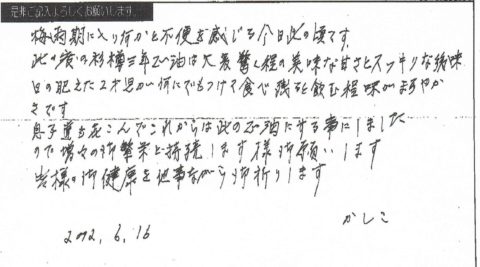 是非ご記入よろしくお願いします。
梅雨期に入り何かと不便を感じる今日此の頃です。
此の度の杉樽三年正油は大変驚く程の美味な甘さとスッキリな後味
目の肥えた2才児が何にでもつけて食べ残ると飲む程味がまろやか
さです
息子達も喜こんでこれからは此の正油にする事にしました
ので増々の御繁栄と持続します様御願いします
皆様の御健康を他事ながら御祈りします
かしこ
6.16